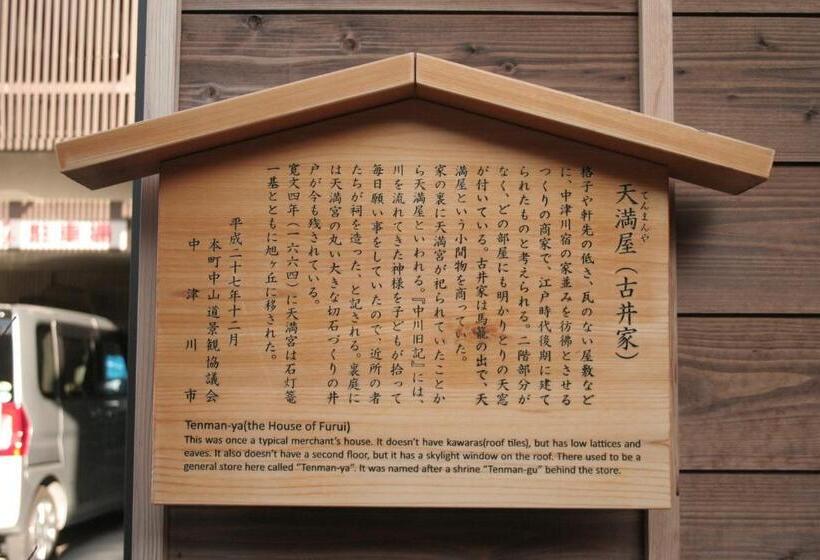 天満屋（古井家）
てんまんや
格子や軒先の低さ、瓦のない屋敷など
に、中津川宿の家並みを彷彿とさせる
つくりの商家で、江戸時代後期に建て
られたものと考えられる。二階部分が
なく、どの部屋にも明かりとりの天窓
が付いている。古井家は馬籠の出で、天
満屋という小間物を商っていた。
家の裏に天満宮が祀られていたことか
ら天満屋といわれる。『中川旧記』には、
川を流れてきた神様を子どもが拾って
毎日願い事をしていたので、近所の者
たちが祠を造った、と記される。裏庭に
は天満宮の丸い大きな切石づくりの井
戸が今も残されている。
寛文四年（一六六四）に天満宮は石灯篭
一基とともに旭ヶ丘に移された。
平成二十七年十二月
本町中山道景観協議会
中津川市
Tenman-ya(the House of Furui)
This was once a typical merchant's house. It doesn't have kawaras(roof tiles), but has low lattices and
eaves. It also doesn't have a second floor, but it has a skylight window on the roof. There used to be a
general store here called "Tenman-ya". It was named after a shrine "Tenman-gu" behind the store.